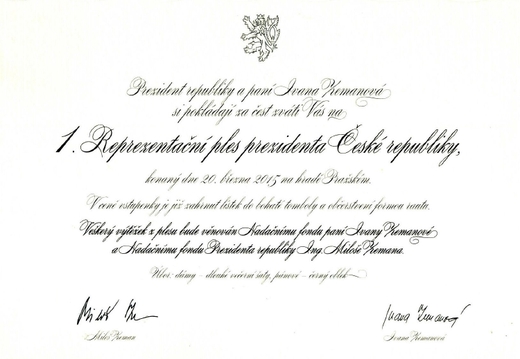 Prezident republiky a paní Ivana Zemanová
si pokládají za čest zváti Vás na
1. Reprezentační ples prezidenta České republiky,
konaný dne 20. března 2015 na hradě Pražském.
V ceně vstupenky je již zahrnut lístek do bohaté tomboly a občerstvení formou rautu.
Veškerý výtěžek z plesu bude věnován Nadačnímu fondu paní Ivany Zemanové
a Nadačnímu fondu Prezidenta republiky Ing. Miloše Zemana.
Úbor: dámy – dlouhé večerní šaty, pánové – černý oblek
Miloš Zeman
Ivana Zemanová
Miloš Zeman
Ivana Zemanová